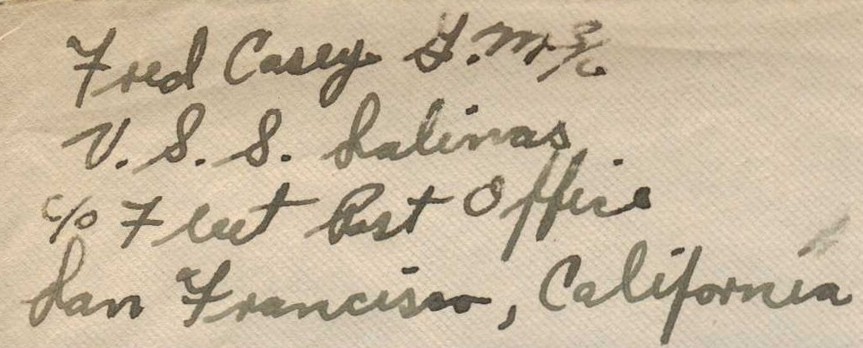 Fred Casey G.M. 3/c
U.S.S. Salinas
c/o Fleet Post Office
San Francisco, California